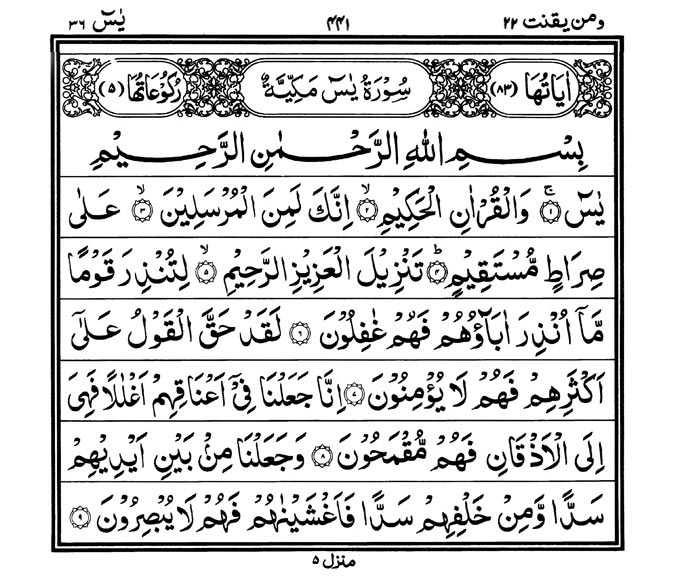 ومن يقنت ٢٢ ٤٤١ يٰسٓ ٣٦
اٰيَاتُهَا (٨٣) سُوْرَةُ يٰسٓ مَكِّيَّةٌ رُكُوْعَاتُهَا (٥)
بِسْمِ اللّٰهِ الرَّحْمٰنِ الرَّحِيْمِ
يٰسٓ ۚ‏﴿١﴾ وَالْقُرْاٰنِ الْحَكِيْمِ ۙ‏﴿٢﴾ اِنَّكَ لَمِنَ الْمُرْسَلِيْنَ ۙ‏﴿٣﴾ عَلٰى
صِرَاطٍ مُّسْتَقِيْمٍ ؕ‏﴿٤﴾ تَنْزِيْلَ الْعَزِيْزِ الرَّحِيْمِ ۙ‏﴿٥﴾ لِتُنْذِرَ قَوْمًا
مَّاۤ اُنْذِرَ اٰبَآؤُهُمْ فَهُمْ غٰفِلُوْنَ ﴿٦﴾ لَقَدْ حَقَّ الْقَوْلُ عَلٰٓى
اَكْثَرِهِمْ فَهُمْ لَا يُؤْمِنُوْنَ ﴿٧﴾ اِنَّا جَعَلْنَا فِيْۤ اَعْنَاقِهِمْ اَغْلٰلًا فَهِىَ
اِلَى الْاَذْقَانِ فَهُمْ مُّقْمَحُوْنَ ﴿٨﴾ وَجَعَلْنَا مِنْۢ بَيْنِ اَيْدِيْهِمْ
سَدًّا وَّمِنْ خَلْفِهِمْ سَدًّا فَاَغْشَيْنٰهُمْ فَهُمْ لَا يُبْصِرُوْنَ ﴿٩﴾
منزل ٥